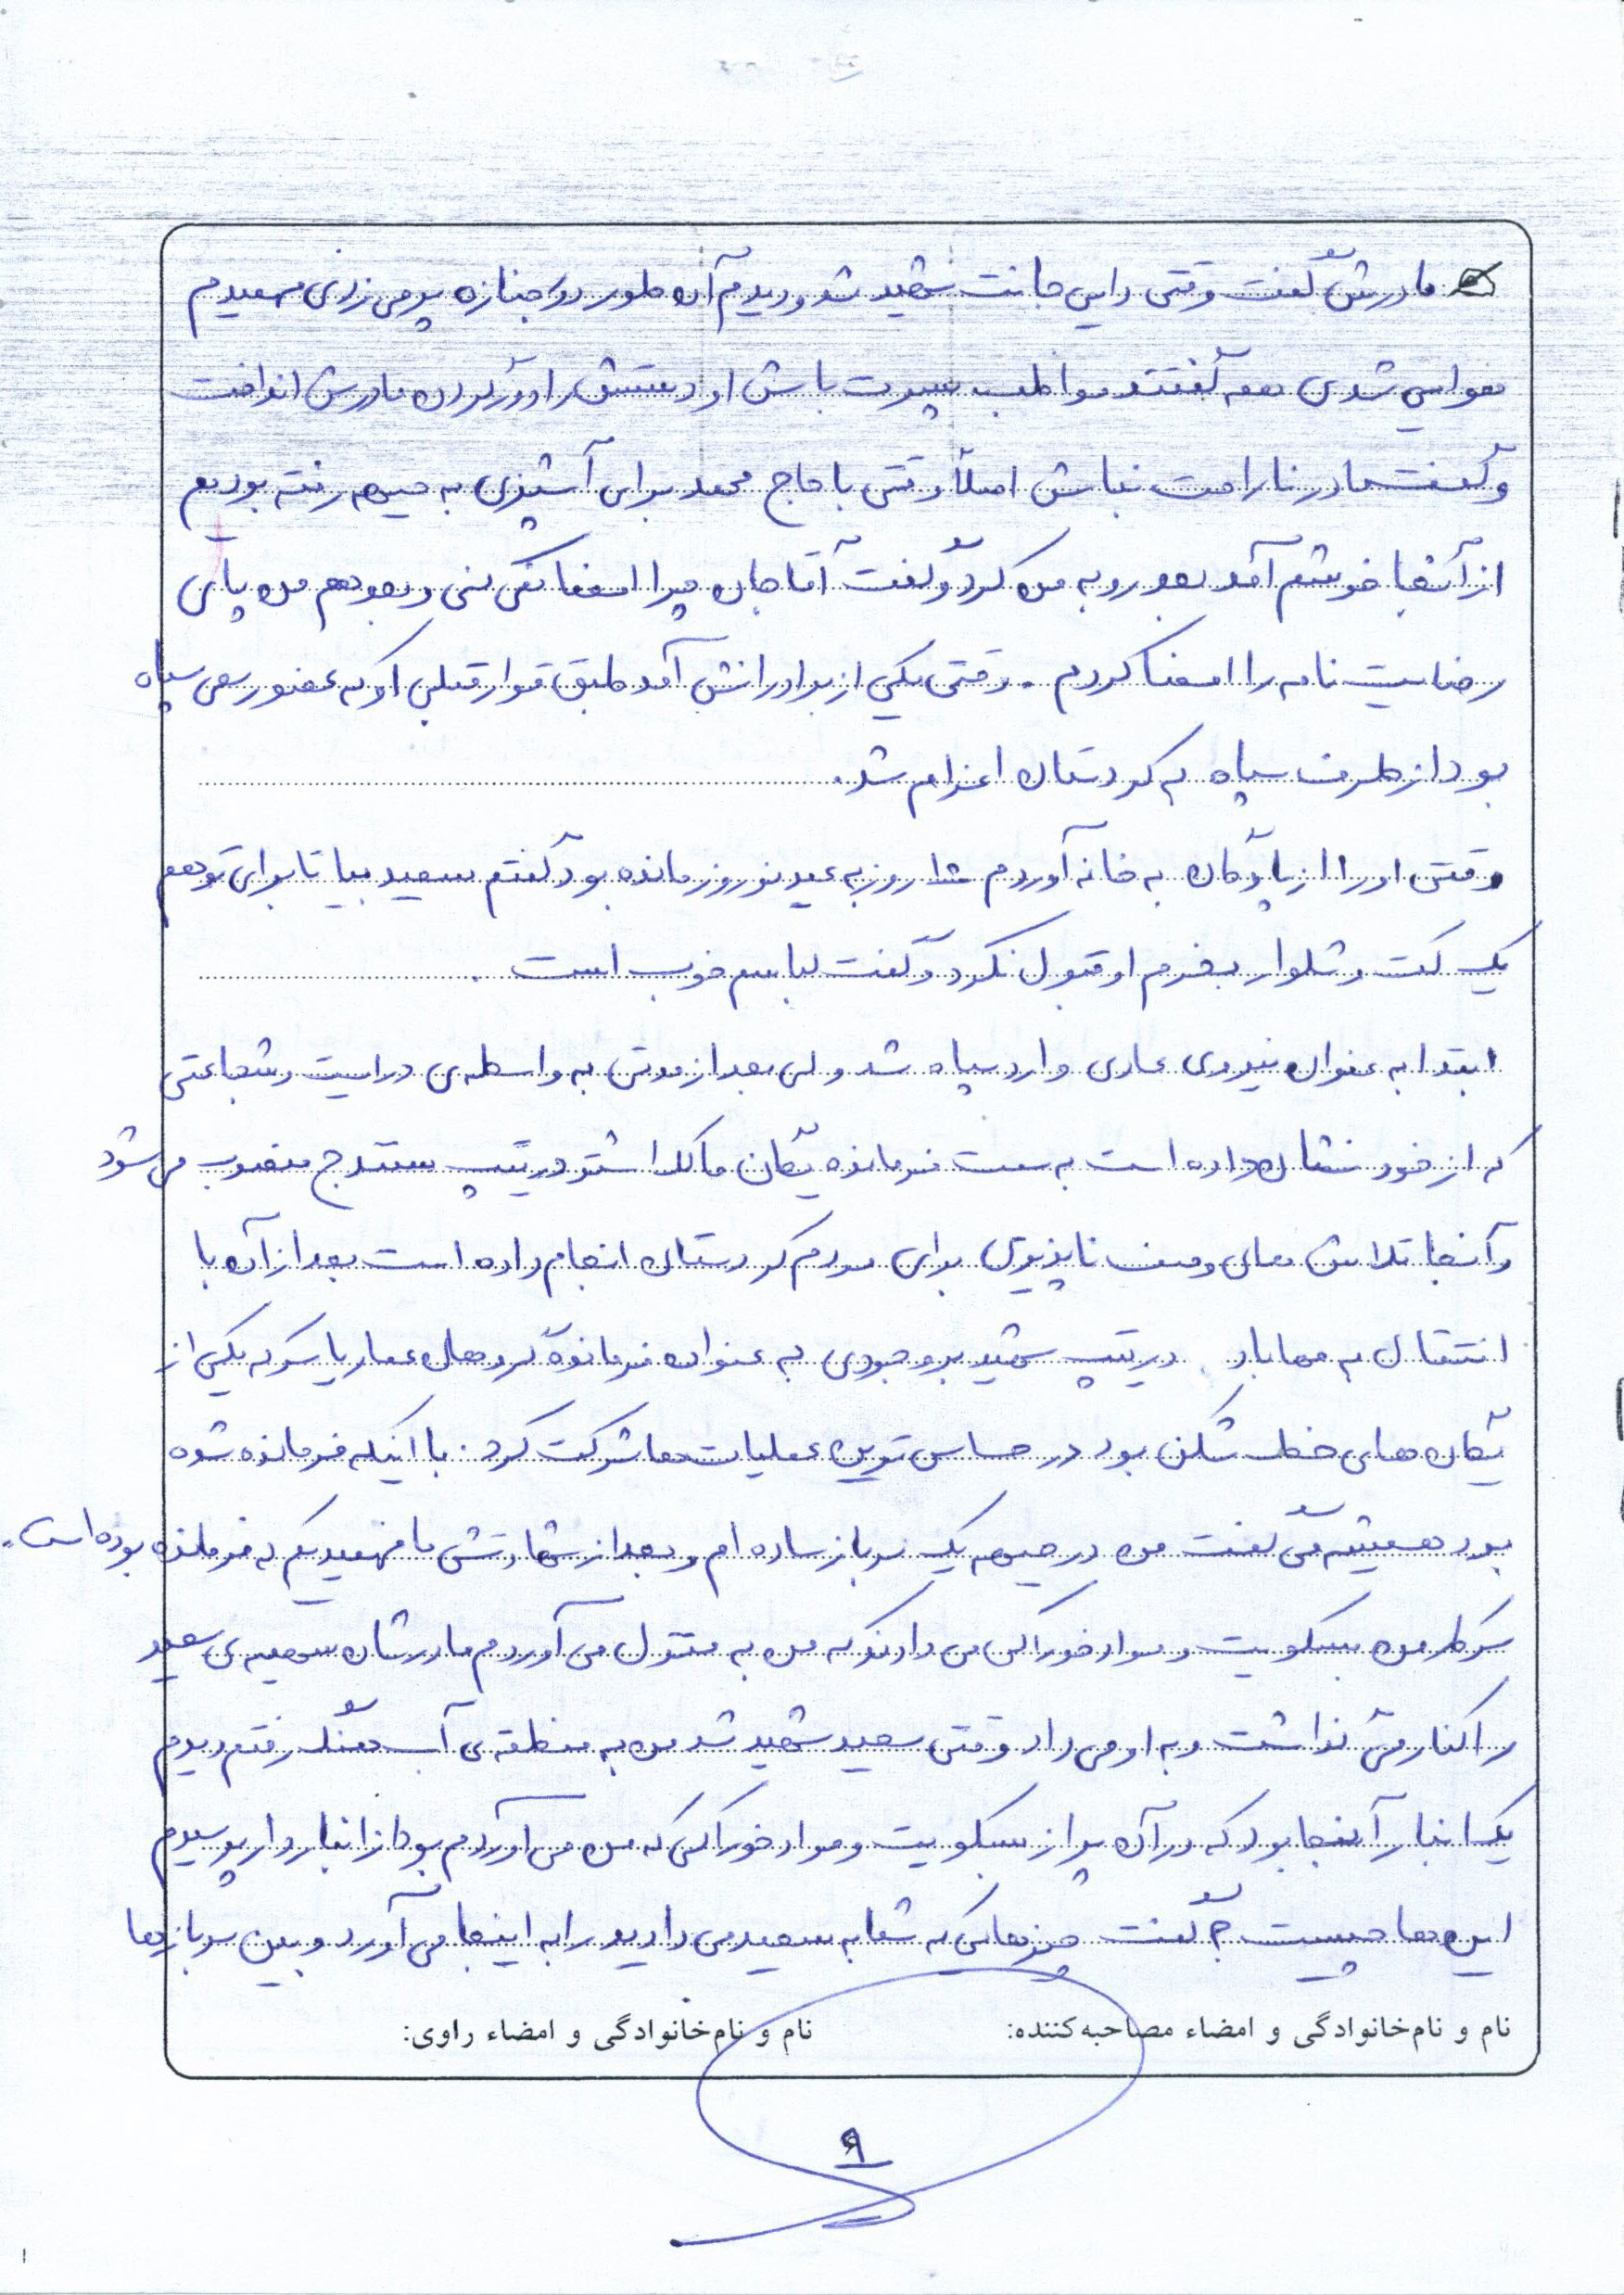 مادرش گفت وقتی دایی جانت شهید شد و دیدم آن طور دور جنازه پر می زدی فهمیدم
هوایی شدی همه گفتند مواظب پسرت باش او دستش را دور گردن مادرش انداخت
و گفت مادر ناراحت نباش اصلاً وقتی با حاج محمد برای آشپزی به جبهه رفته بودیم
از آنجا خوشم آمد بعد رو به من کرد و گفت آقا جان چرا امضا نمی کنی و بعد هم من پای
رضایت نامه را امضا کردم . وقتی یکی از برادرانش آمد طبق قرار قبلی او که عضو رسمی سپاه
بود از طرف سپاه به کردستان اعزام شد .
وقتی او را از پادگان به خانه آوردم روز به عید نوروز مانده بود گفتم سعید بیا تا برای تو هم
یک کت و شلوار بخرم او قبول نکرد و گفت لباسم خوب است .
ابتدا به عنوان نیروی عادی وارد سپاه شد ولی بعد از مدتی به واسطه ی درایت و شجاعتی
که از خود نشان داده است به سمت فرمانده یگان مالک اشتر در تیپ سنندج منصوب می شود
و آنجا تلاش های وصف ناپذیری برای مردم کردستان انجام داده است بعد از آن با
انتقال به مهاباد در تیپ شهید بروجردی به عنوان فرمانده گردهان عمار یاسر که یکی از
یگان های خط شکن بود در حساس ترین عملیات ها شرکت کرد . با اینکه فرمانده شده
بود همیشه می گفت من در جبهه یک سرباز ساده ام و بعد از شهادتش ما فهمیدیم که فرمانده بوده است .
سر کار من بیسکویت و مواد خوراکی می دادند که من به منزل می آوردم مادرشان سهمیه ی سعید
را کنار می گذاشت و به او می داد وقتی سعید شهید شد من به منطقه ی رفتم دیدم
یک انبار آنجا بود که در آن پر از بیسکویت و مواد خوراکی که من می آوردم بود از انباردار پرسیدم
این ها چیست ؟ گفت چیزهایی که شما به سعید می دادید را به اینجا می آورد و بین سربازها
نام و نام‌خانوادگی و امضاء مصاحبه‌کننده: نام و نام‌خانوادگی و امضاء راوی:
۹